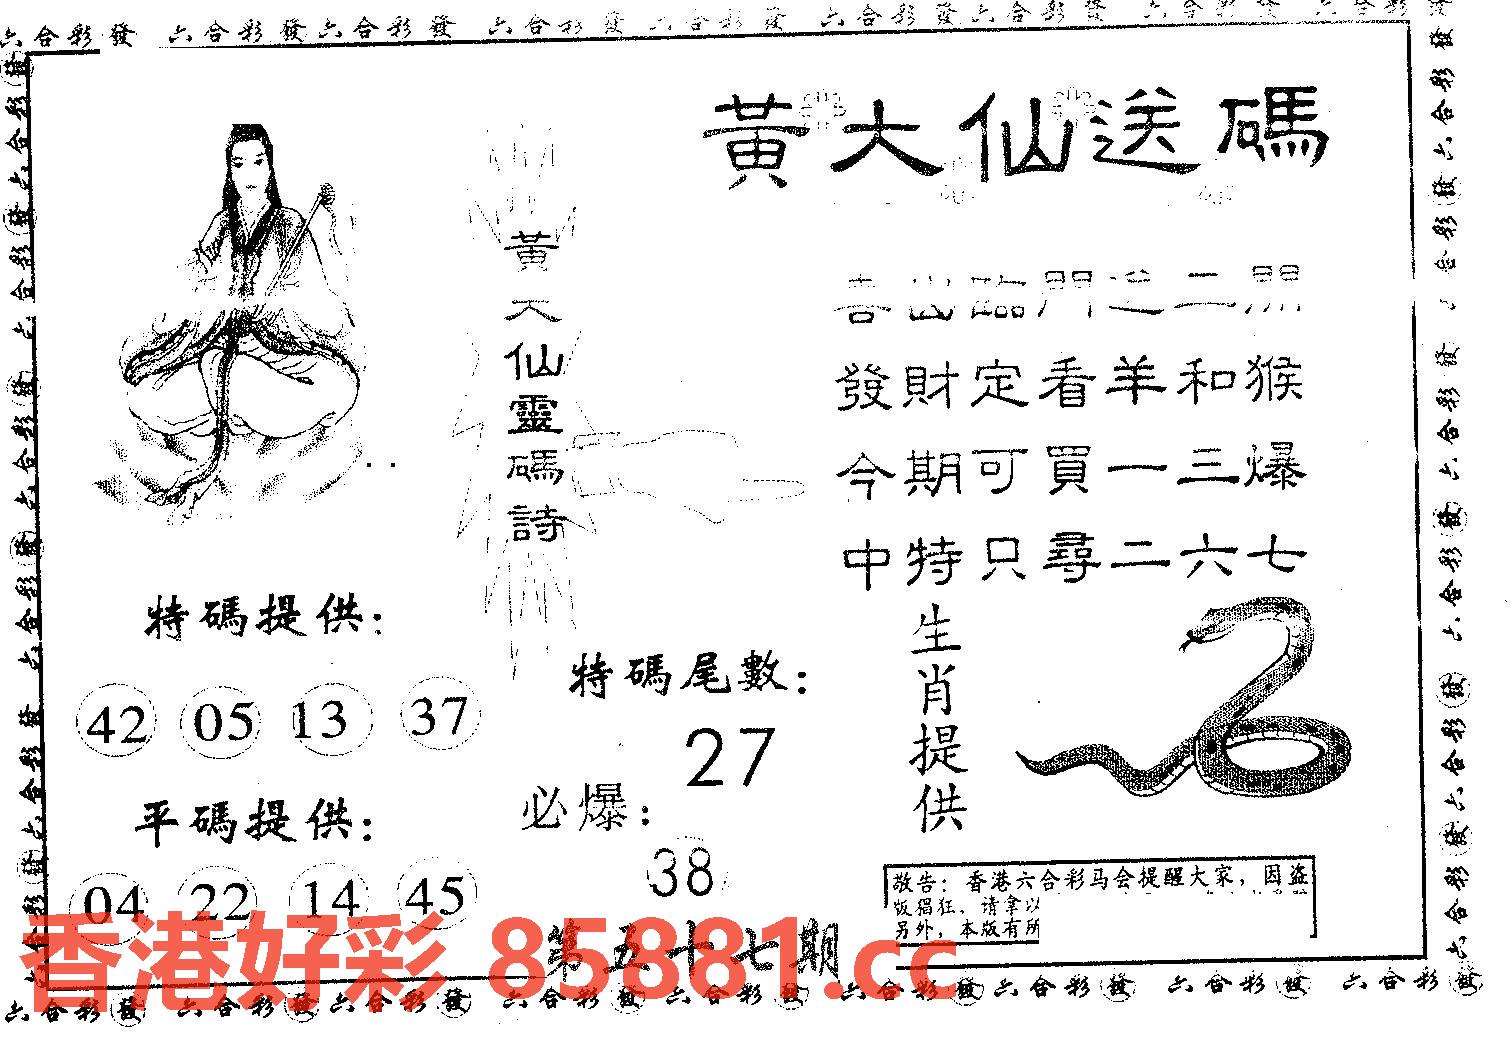 六合彩發 六合彩發六合彩發 六合彩發 六合彩發 六合彩發六合彩發 六合彩發 六合彩發
黃大仙送碼
黃大仙靈碼詩
臨門送二開
發財定看羊和猴
今期可買一三爆
中特只尋二六七
特碼提供:
42 05 13 37
特碼尾數:
27
生肖提供
平碼提供:
04 22 14 45
必爆:
38
敬告:香港六合彩马会提醒大家,因盗
版猖狂,请拿以
另外,本版有所
第五十七期
香港好彩 85881.cc
六合彩發 六合彩發六合彩發 六合彩發 六合彩發 六合彩發六合彩發 六合彩發 六合彩發